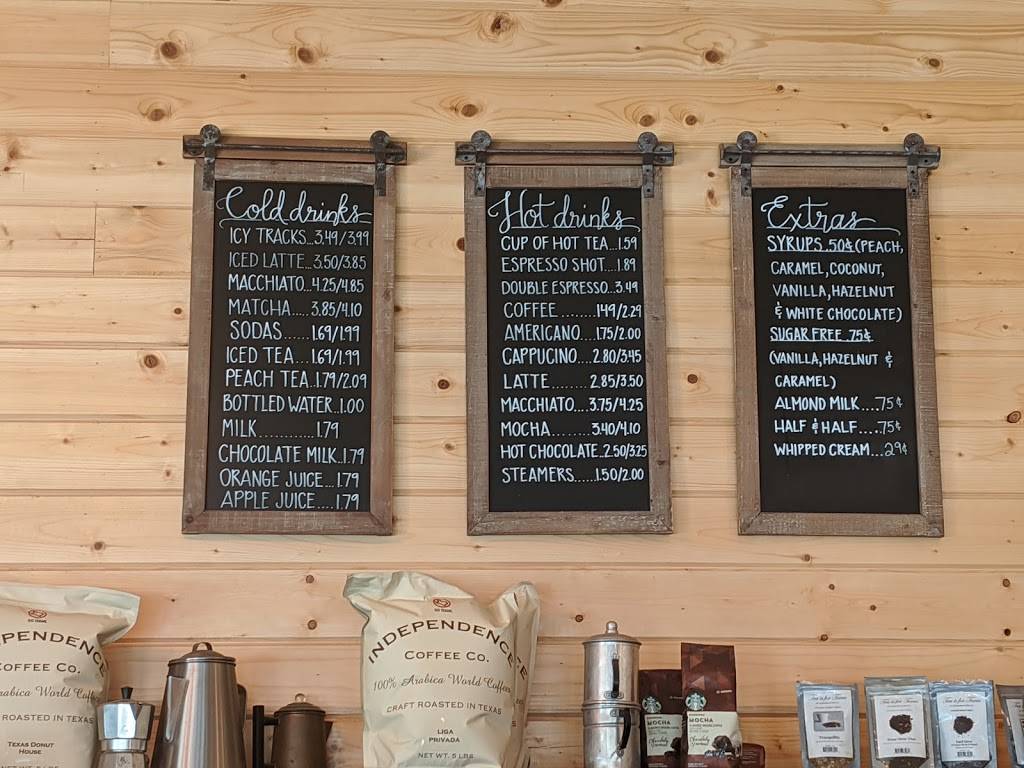 Cold drinks
ICY TRACKS...3.49/3.99
ICED LATTE...3.50/3.85
MACCHIATO...4.25/4.85
MATCHA.....3.85/4.10
SODAS......1.69/1.99
ICED TEA....1.69/1.99
PEACH TEA..1.79/2.09
BOTTLED WATER..1.00
MILK............1.79
CHOCOLATE MILK..1.79
ORANGE JUICE...1.79
APPLE JUICE.....1.79
Hot drinks
CUP OF HOT TEA...1.59
ESPRESSO SHOT....1.89
DOUBLE ESPRESSO..3.49
COFFEE .........1.49/2.29
AMERICANO....1.75/2.00
CAPPUCINO....2.80/3.45
LATTE.........2.85/3.50
MACCHIATO....3.75/4.25
MOCHA........3.40/4.10
HOT CHOCOLATE..2.50/3.25
STEAMERS......1.50/2.00
Extras
SYRUPS .50¢ (PEACH,
CARAMEL, COCONUT,
VANILLA, HAZELNUT
& WHITE CHOCOLATE)
SUGAR FREE .75¢
(VANILLA, HAZELNUT &
CARAMEL)
ALMOND MILK....75¢
HALF & HALF.....75¢
WHIPPED CREAM...29¢
PENDENCE
COFFEE CO.
Arabica World Coffees
ROASTED IN TEXAS
TEXAS DONUT
HOUSE
INDEPENDENCE
COFFEE CO.
100% Arabica World Coffees
CRAFT ROASTED IN TEXAS
LIGA
PRIVADA
NET WT. 5 LBS
STARBUCKS
MOCHA
MOCHA
Tranquility